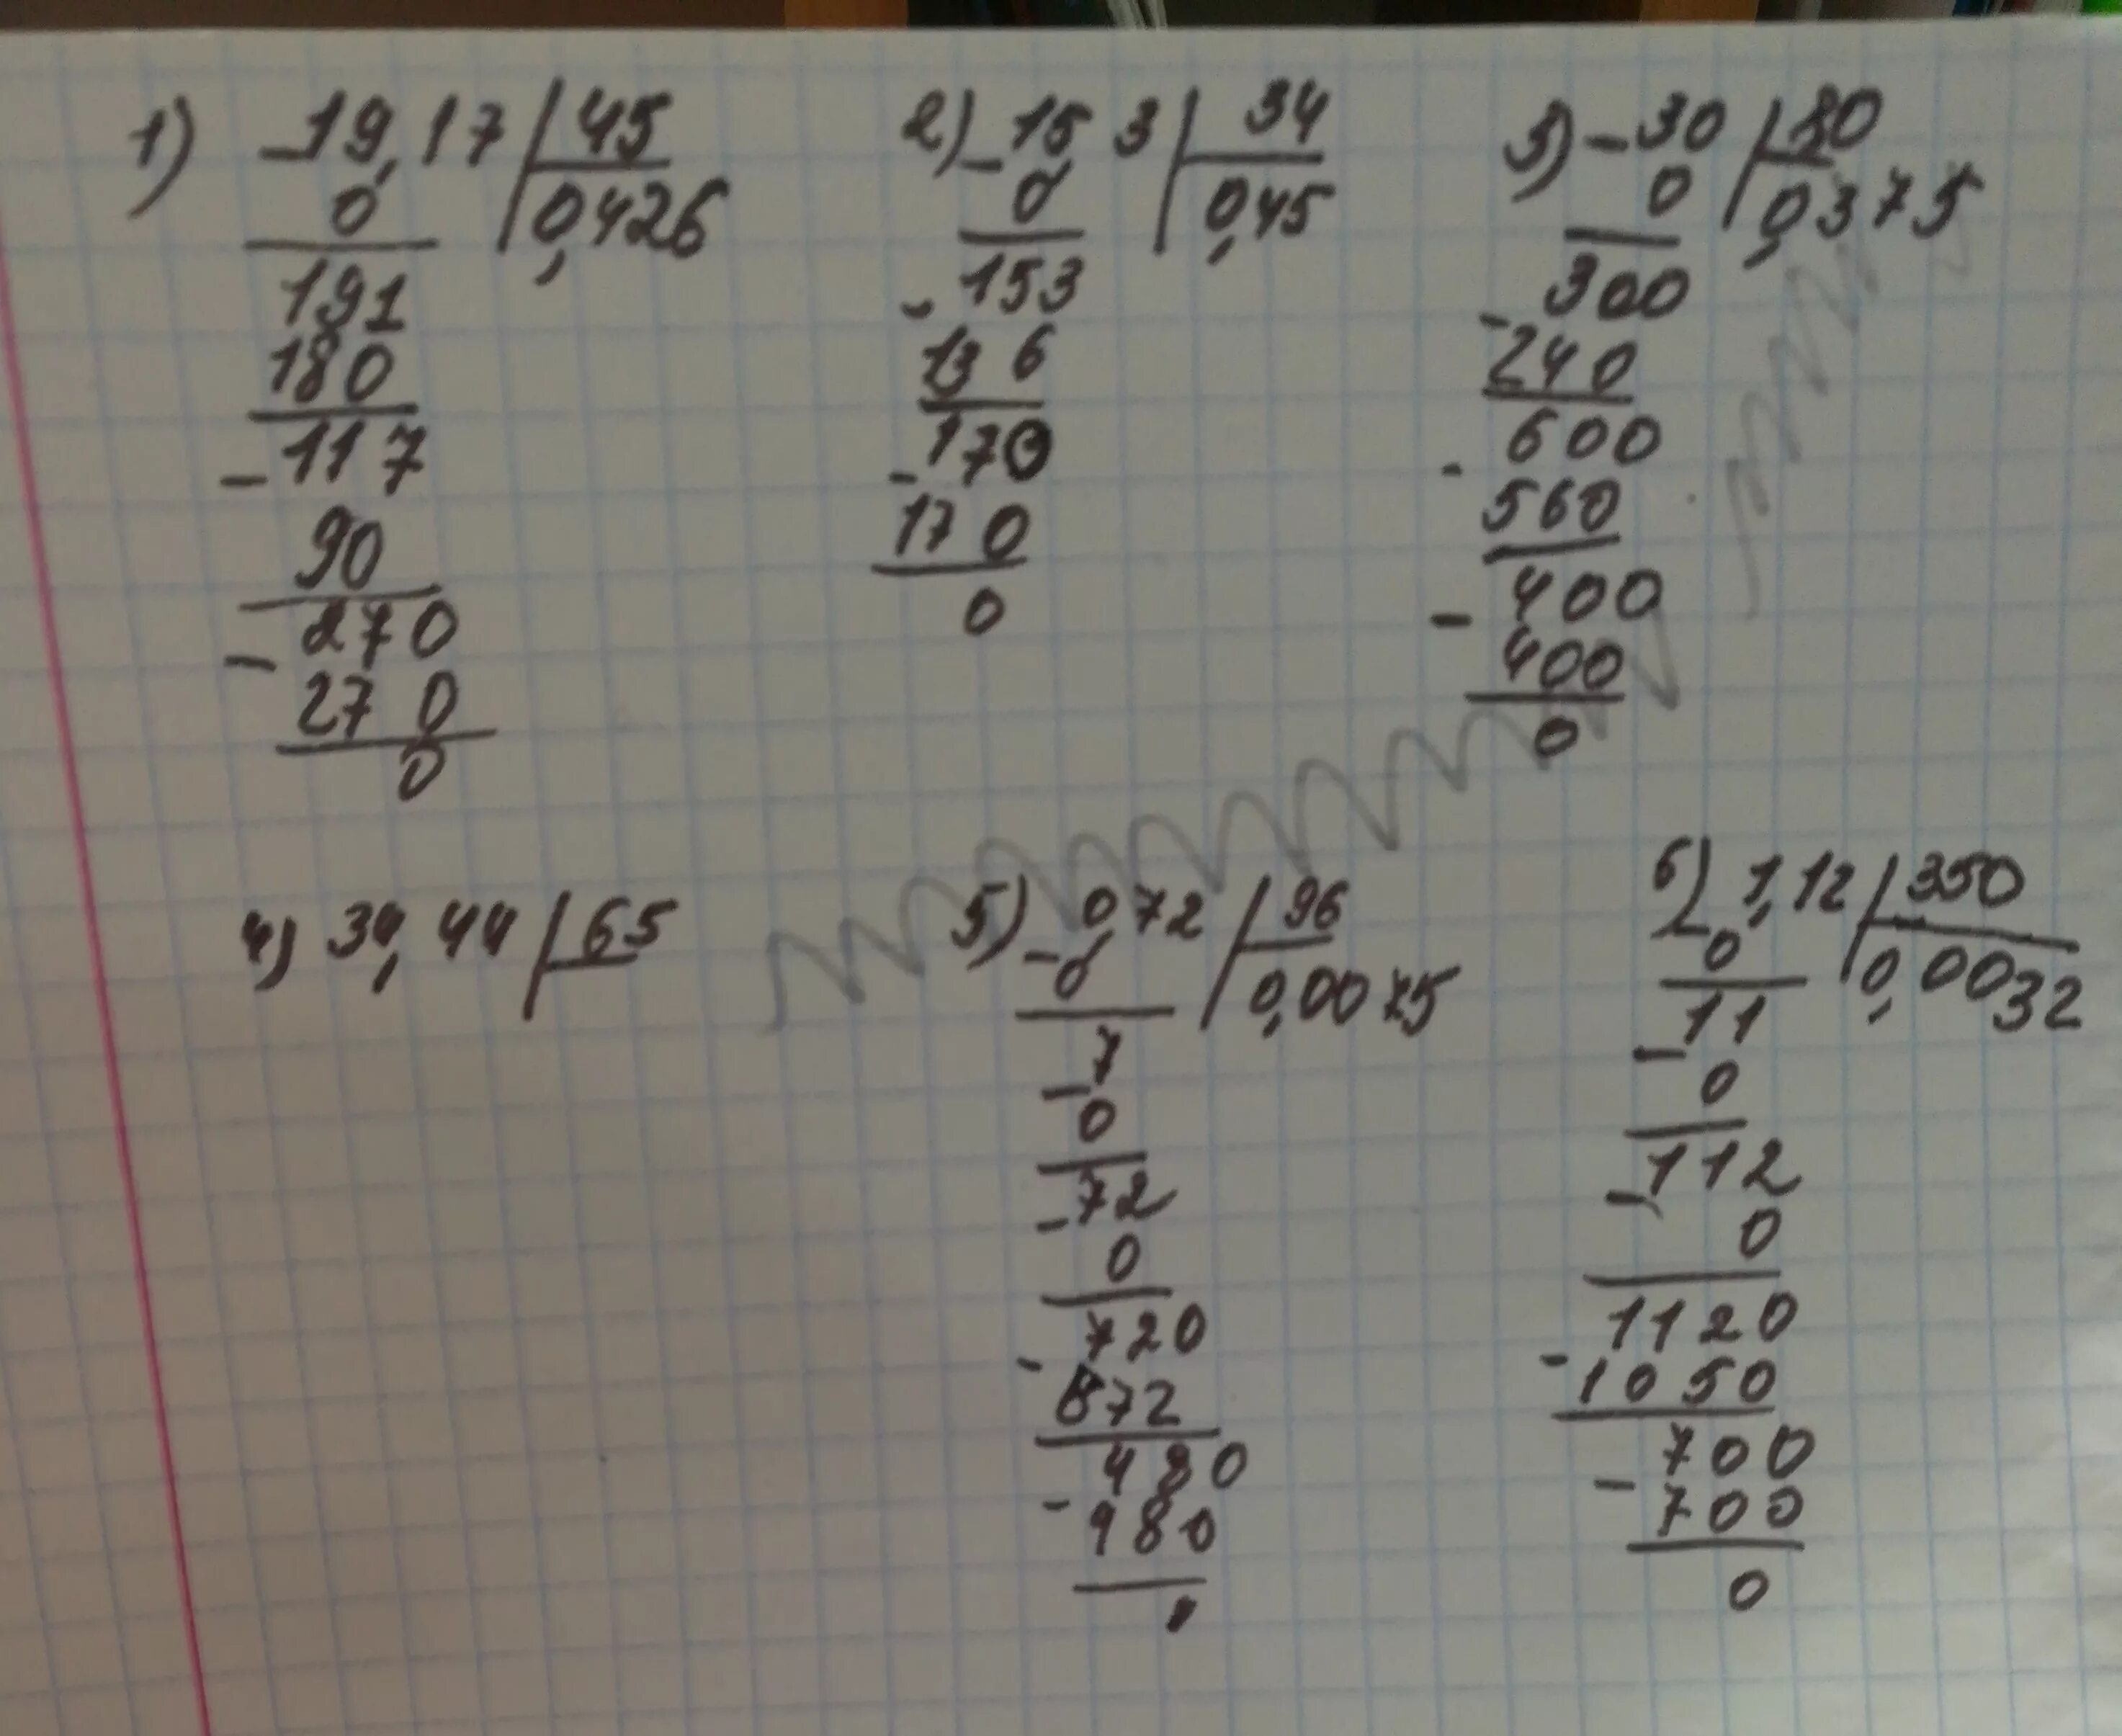 1) -19,17 | 45
0 | 0,426
191
180
-117
90
-270
270
0
2) -15 3 | 34
0 | 0,45
-153
136
-170
170
0
3) -30 | 80
0 | 0,375
-300
240
-600
560
-400
400
0
4) 34,44 | 65
5) -0,72 | 96
0 | 0,0075
7
-0
-72
0
-720
672
-480
480
6) -1,12 | 350
0 | 0,0032
-11
0
-112
0
-1120
1050
-700
700
0